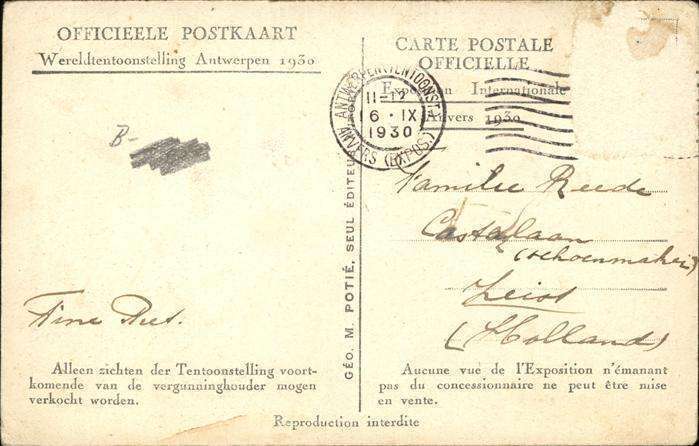 OFFICIEELE POSTKAART
Wereldtentoonstelling Antwerpen 1930
CARTE POSTALE
OFFICIELLE
Exposition Internationale
Anvers 1930
ANTWERPEN (TENTOONST.)
11-12
6 · IX
1930
ANVERS (EXPOS.)
B-
Familie Reede
Castellaan
(schoenmaker)
Zeist
(Holland)
GÉO. M. POTIÉ, SEUL ÉDITEUR
Alleen zichten der Tentoonstelling voort-
komende van de vergunninghouder mogen
verkocht worden.
Aucune vue de l'Exposition n'émanant
pas du concessionnaire ne peut être mise
en vente.
Reproduction interdite